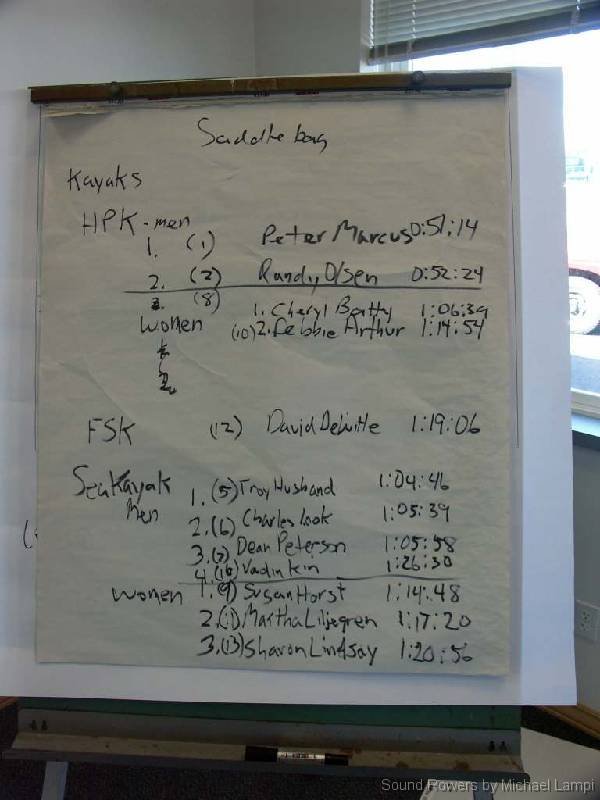 Saddle bag
Kayaks
HPK-men
1. (1) Peter Marcus 0:51:14
2. (2) Randy Olsen 0:52:24
3. (8) 1. Cheryl Beatty 1:06:39
women (10) 2. Debbie Arthur 1:14:54
2.
FSK (12) David DeWitte 1:19:06
Sea Kayak
Men 1. (5) Troy Husband 1:04:46
2. (6) Charles Cook 1:05:39
3. (7) Dean Peterson 1:05:58
4. (16) Vadim Kin 1:26:30
women 1. (9) Susan Horst 1:14:48
2. (11) Martha Liljegren 1:17:20
3. (13) Sharon Lindsay 1:20:56
Sound Rowers by Michael Lampi